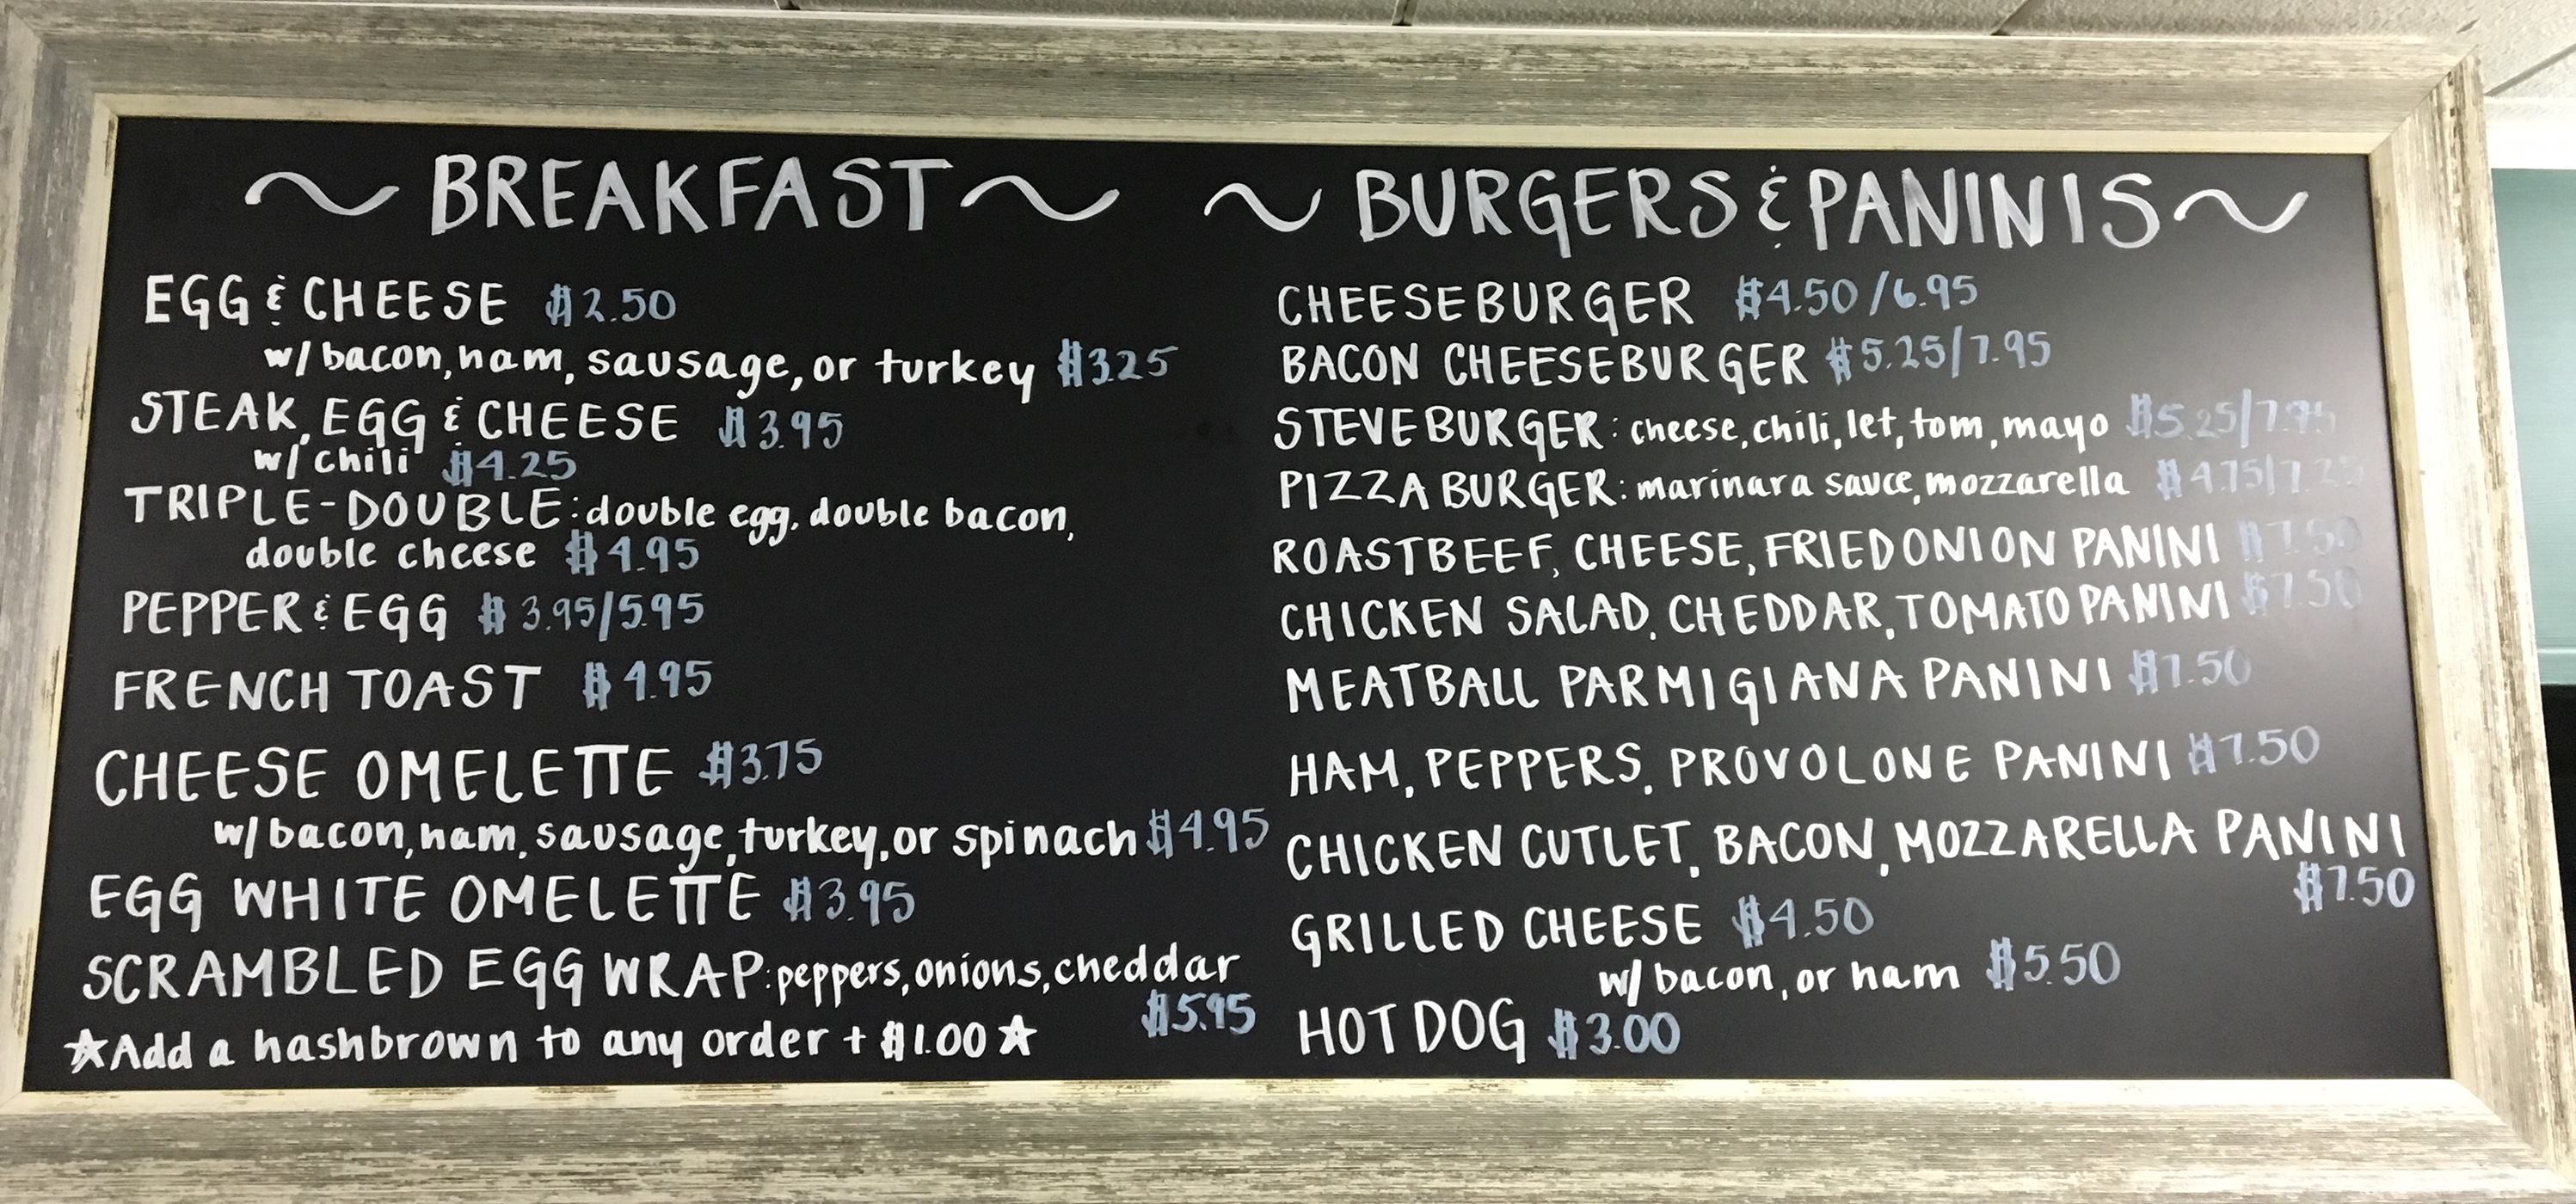 ~ BREAKFAST ~
EGG & CHEESE $2.50
w/ bacon, ham, sausage, or turkey $3.25
STEAK, EGG & CHEESE $3.95
w/ chili $4.25
TRIPLE-DOUBLE: double egg, double bacon,
double cheese $4.95
PEPPER & EGG $3.95/5.95
FRENCH TOAST $4.95
CHEESE OMELETTE $3.75
w/ bacon, ham, sausage, turkey, or spinach $4.95
EGG WHITE OMELETTE $3.95
SCRAMBLED EGG WRAP: peppers, onions, cheddar
$5.95
☆Add a hashbrown to any order + $1.00☆
~ BURGERS & PANINIS ~
CHEESEBURGER $4.50/6.95
BACON CHEESEBURGER $5.25/7.95
STEVEBURGER: cheese, chili, let, tom, mayo $5.25/7.95
PIZZA BURGER: marinara sauce, mozzarella $4.75/7.25
ROASTBEEF, CHEESE, FRIED ONION PANINI $7.50
CHICKEN SALAD, CHEDDAR, TOMATO PANINI $7.50
MEATBALL PARMIGIANA PANINI $7.50
HAM, PEPPERS, PROVOLONE PANINI $7.50
CHICKEN CUTLET, BACON, MOZZARELLA PANINI
$7.50
GRILLED CHEESE $4.50
w/ bacon, or ham $5.50
HOT DOG $3.00